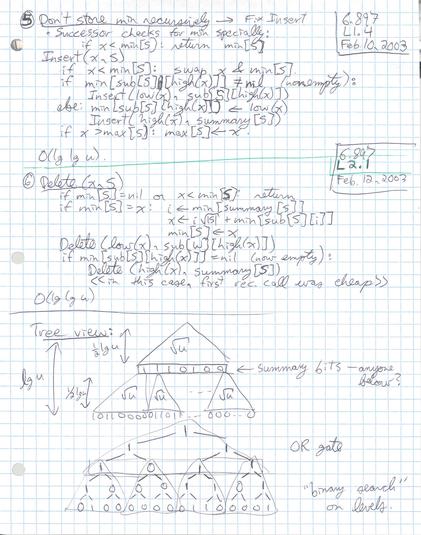 ⑤ Don't store min recursively → Fix Insert
6.897
L1.4
Feb. 10, 2003
• Successor checks for min specially:
if x < min[S]: return min[S]
Insert(x, S)
if x < min[S]: swap x & min[S]
if min[sub[S][high(x)]] ≠ nil (nonempty):
Insert(low(x), sub[S][high(x)])
else: min[sub[S][high(x)]] ← low(x)
Insert(high(x), summary[S])
if x > max[S]: max[S] ← x
O(lg lg u).
6.897
L2.1
Feb. 12, 2003
⑥ Delete(x, S)
if min[S] = nil or x < min[S]: return
if min[S] = x: i ← min[summary[S]]
x ← i√|S| + min[sub[S][i]]
min[S] ← x
Delete(low(x), sub[W][high(x)])
if min[sub[S][high(x)]] = nil (now empty):
Delete(high(x), summary[S])
<<in this case, first rec. call was cheap>>
O(lg lg u)
Tree view:
lg u
½ lg u
√u
1 1 1 0 1 0 0
← summary bits — anyone below?
½ lg u
√u √u ... √u
011000001101 ... 000--0
OR gate
"binary search"
on levels.